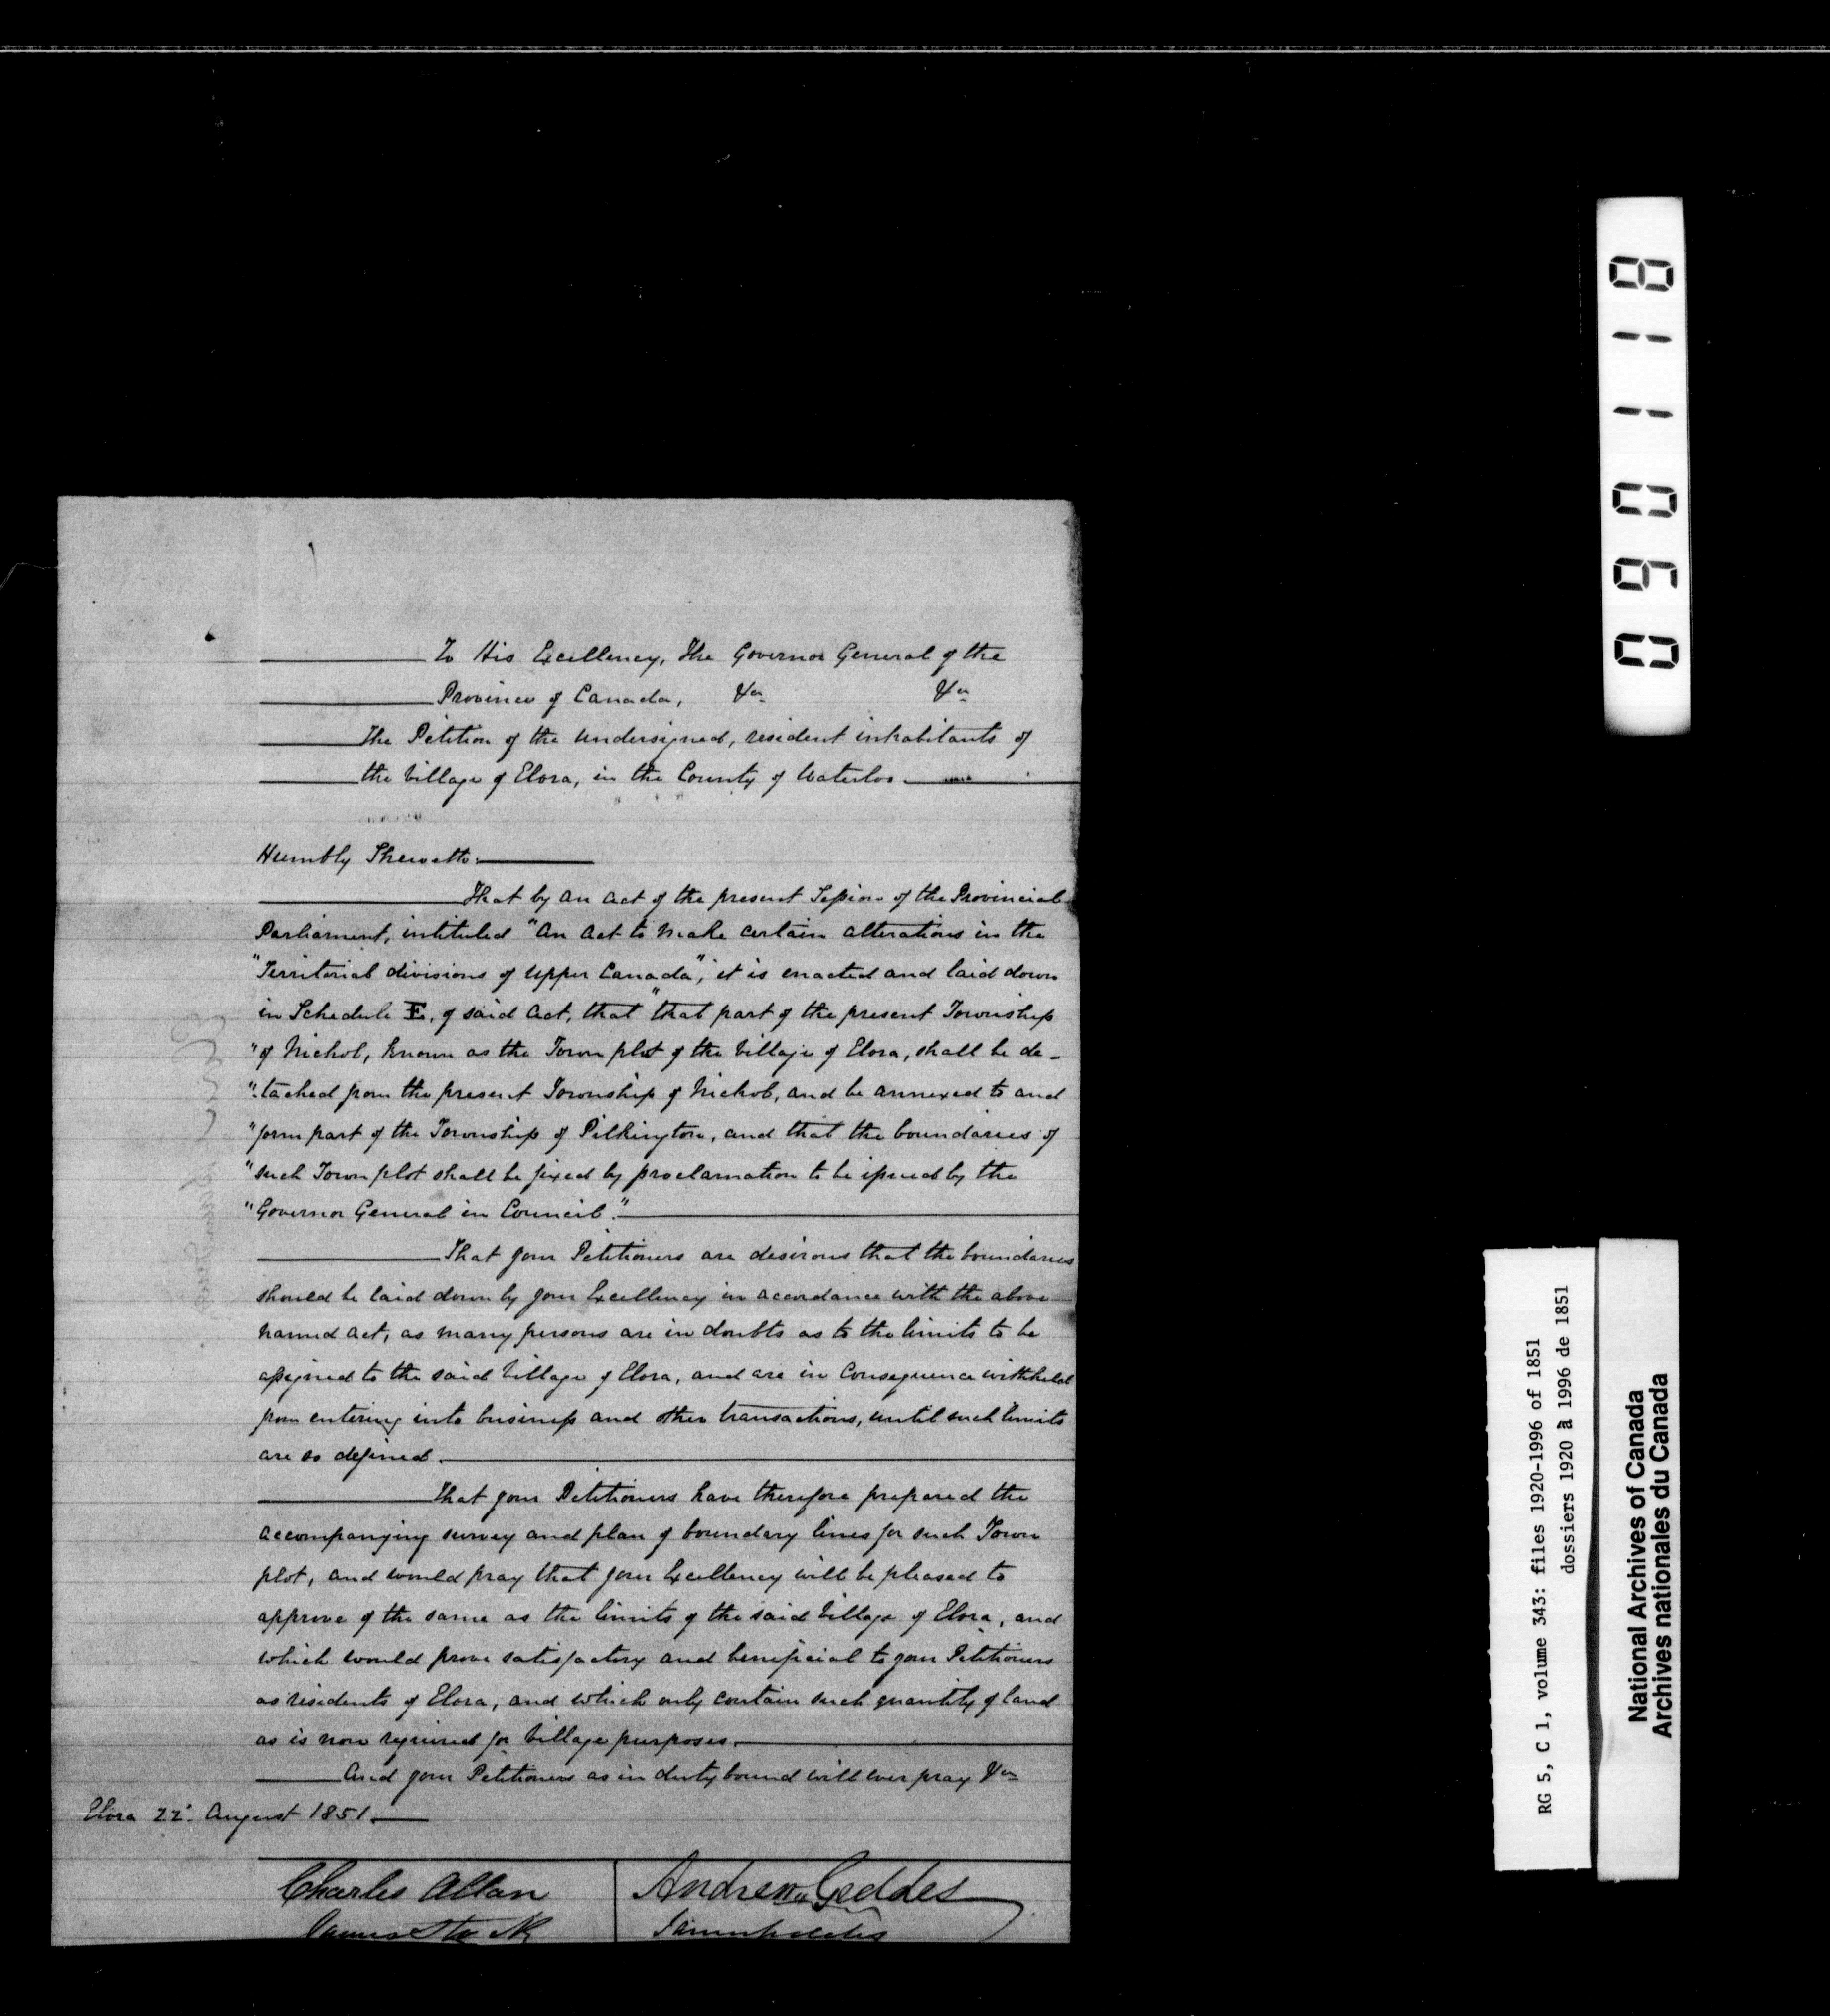 To His Excellency, The Governor General of the
Province of Canada, &c. &c.
The Petition of the Undersigned, resident inhabitants of
the Village of Elora, in the County of Waterloo.
Humbly Sheweth:
That by an Act of the present Session of the Provincial
Parliament, intituled "An Act to make certain alterations in the
"Territorial divisions of Upper Canada", it is enacted and laid down
in Schedule E, of said Act, that "that part of the present Township
"of Nichol, known as the Town plot of the Village of Elora, shall be de-
"-tached from the present Township of Nichol, and be annexed to and
"form part of the Township of Pilkington, and that the boundaries of
"such Town plot shall be fixed by proclamation to be issued by the
"Governor General in Council."
That your Petitioners are desirous that the boundaries
should be laid down by your Excellency in accordance with the above
named Act, as many persons are in doubts as to the limits to be
assigned to the said Village of Elora, and are in Consequence withheld
from entering into business and other transactions, until such limits
are so defined.
That your Petitioners have therefore prepared the
accompanying survey and plan of boundary lines for such Town
plot, and would pray that your Excellency will be pleased to
approve of the same as the limits of the said Village of Elora, and
which would prove satisfactory and beneficial to your Petitioners
as residents of Elora, and which only contain such quantity of land
as is now required for Village purposes.
And your Petitioners as in duty bound will ever pray &c
Elora 22. August 1851.
Charles Allan
Andrew Geddes
James
090118
RG 5, C 1, volume 343: files 1920-1996 of 1851
dossiers 1920 à 1996 de 1851
National Archives of Canada
Archives nationales du Canada